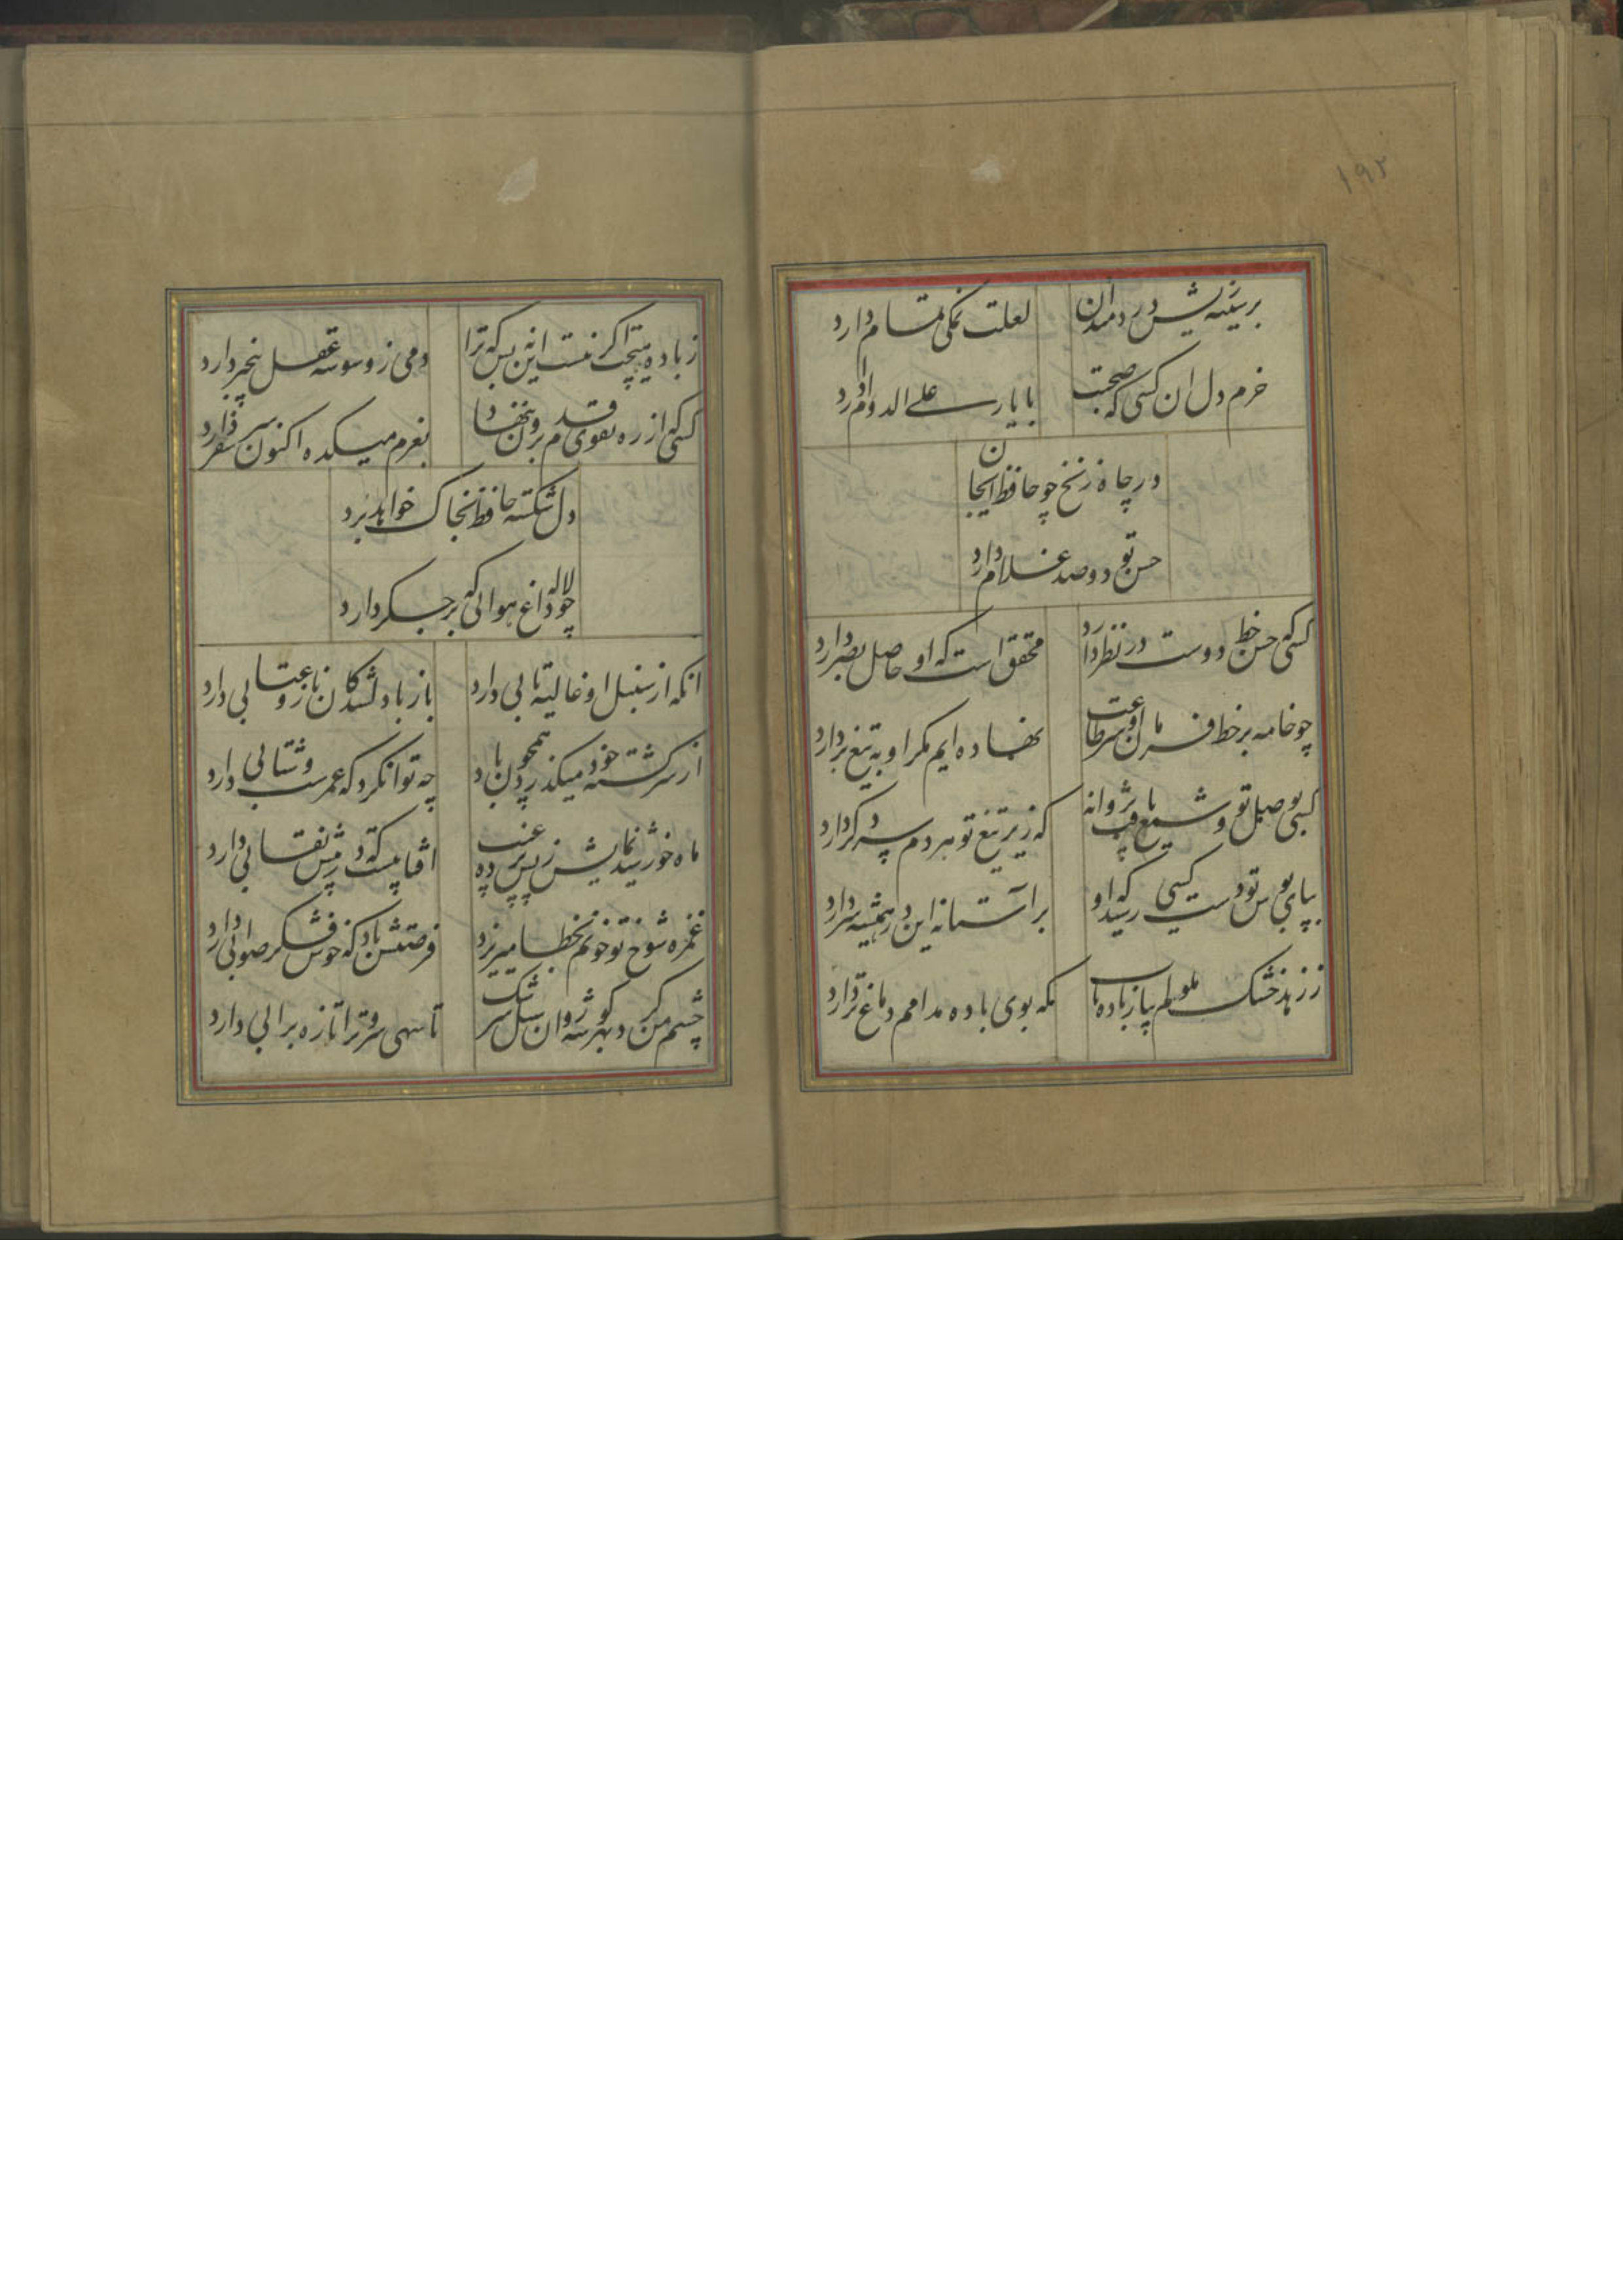 ۱۹۲
بر سینه ریش دردمندان لعلت نمکی تمام دارد
خرم دل ان کسی که صحبت با یار علی الدوام دارد
در چاه زنخ چو حافظ ایجان
حسن تو دو صد غلام دارد
کسی که حسن خط دوست در نظر دارد محقق است که او حاصل بصر دارد
چو خامه بر خط فرمان او سر طاعت نهاده ایم مکر او به تیغ بردارد
کسی بوصل تو چون شمع یافت پروانه که زیر تیغ تو هر دم سر دکر دارد
بپای بوس تو دست کسی رسید که او بر آستانه این در همیشه سر دارد
ز زهد خشک ملولم بیار باده ناب که بوی باده مدامم دماغ تر دارد
ز باده هیچت اکر نیست این نه بس که ترا دمی ز وسوسه عقل بیخبر دارد
کسی که از ره تقوی قدم برون ننهاد بعزم میکده اکنون سر سفر دارد
دل شکسته حافظ بخاک خواهد برد
چو لاله داغ هوائی که بر جکر دارد
انکه از سنبل او غالیه تابی دارد باز با دلشدکان ناز و عتابی دارد
از سر کشته خود میکذرد همچون باد چه توان کرد که عمرست و شتابی دارد
ماه خورشید نمایش ز پس پرده عنبر افتابیست که در پیش نقابی دارد
غمزه شوخ تو خونم بخطا میریزد فرصتش باد که خوش فکر صوابی دارد
چشم من کرد بهر کوشه روان سیل سرشک تا سهی سرو ترا تازه برابی دارد